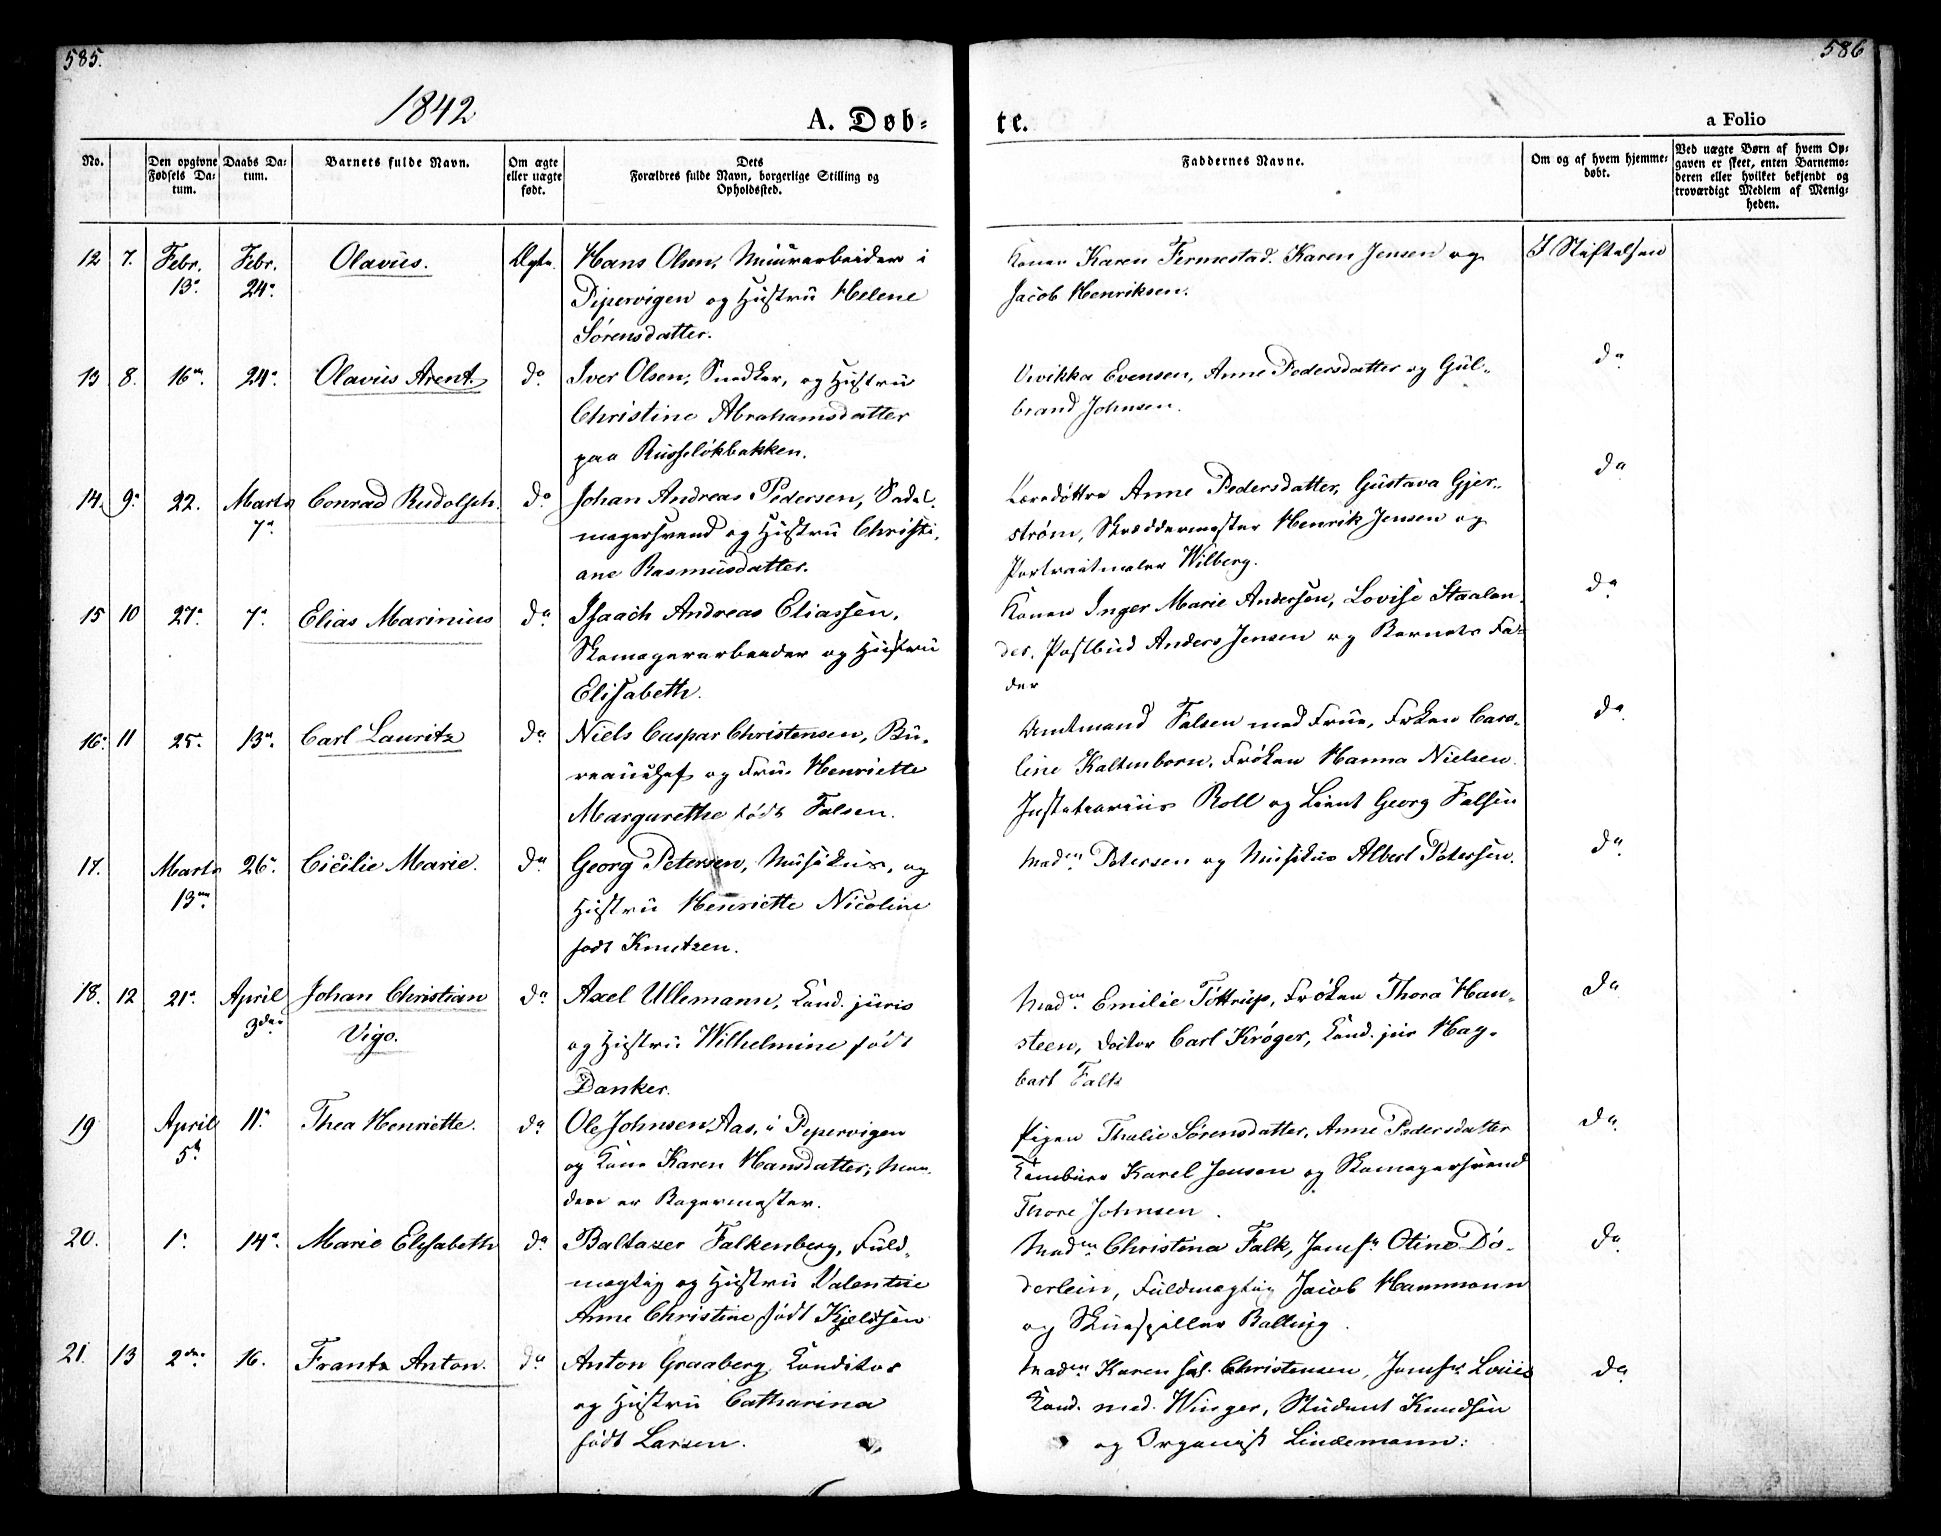 585.
586
1842
A. Døb-
te.
a Folio
No.
Den opgivne Fødsels Datum.
Daabs Datum.
Barnets fulde Navn.
Om ægte eller uægte født.
Dets Forældres fulde Navn, borgerlige Stilling og Opholdssted.
Faddernes Navne.
Om og af hvem hjemmedøbt.
Ved uægte Børn af hvem Opgaven er skeet, enten Barnemoderen eller hvilket bekjendt og troværdigt Medlem af Menigheden.
12 7. Febr. 13. Febr. 24. Olavus. Ægte.
Hans Olsen, Muurarbeider i
Pipervigen og Hustru Helene
Sørensdatter.
Konen Karen Fermestad. Karen Jensen og
Jacob Henriksen.
I Stiftelsen
13 8. 16. 24. Olavus Arent. do
Iver Olsen, Snedker, og Hustru
Christine Abrahamsdatter
paa Russeløkbakken.
Vivikka Evensen, Anne Pedersdatter og Gul-
brand Johnsen.
do
14. 9. 22. Marts 7. Conrad Rudolph. do
Johan Andreas Pedersen, Sadel-
magersvend og Hustru Christi-
ane Rasmusdatter.
Anne Pedersdatter, Gustava Gjer-
strøm, Skræddermester Henrik Jensen og
Portraitmaler Wilberg.
do
15 10 27. 7. Elias Marinius do
Isaach Andreas Eliassen,
Skomagerarbeider og Hustru
Elisabeth.
Konen Inger Marie Andersen, Lovise Staalan-
der, Postbud Anders Jensen og Barnets Fa-
der
do
16. 11 25. 13. Carl Lauritz do
Niels Caspar Christensen, Bu-
reauchef og Frue Henriette
Margarethe født Falsen.
Amtmand Falsen med Frue, Frøken Caro-
line Kaltenborn, Frøken Hanna Nielsen.
Justitiarius Roll og Lieut Georg Falsen
do
17. Marts 13. 26. Cicilie Marie. do
Georg Petersen, Musikus, og
Hustru Henriette Nicoline
født Knutzen.
Madm Petersen og Musikus Albert Petersen.
do
18. 12 21. April 3die Johan Christian Vigo. do
Axel Ullemann, Cand. juris
og Hustru Wilhelmine født
Danker.
Madm Emilie Tøttrup, Frøken Thora Han-
steen, Doctor Carl Krøger, Cand. jur Hag-
bart Falk
do
19 April 5. 11. Thea Henriette. do
Ole Johnsen Aas, i Pipervigen
og Kone Karen Hansdatter; Man-
den er Bagermester.
Pigen Thalie Sørensdatter, Anne Pedersdatter
Karel Jensen og Skomagersvend
Thore Johnsen.
do
20. 1. 14. Marie Elisabeth do
Baltazer Falkenberg, Fuld-
mægtig og Hustru Valentine
Anne Christine født Kjeldsen
Madm Christina Falk, Jomfr Otine Dø-
derlein, Fuldmægtig Jacob Hammann
og Skuespiller Balling.
do
21. 13 2den 16. Frantz Anton. do
Anton Graaberg Conditor
og Hustru Catharina
født Larsen.
Madm Karen sal. Christensen, Jomfr Louis
Cand. med. Winger, Student Knudsen
og Organist Lindemann.
do